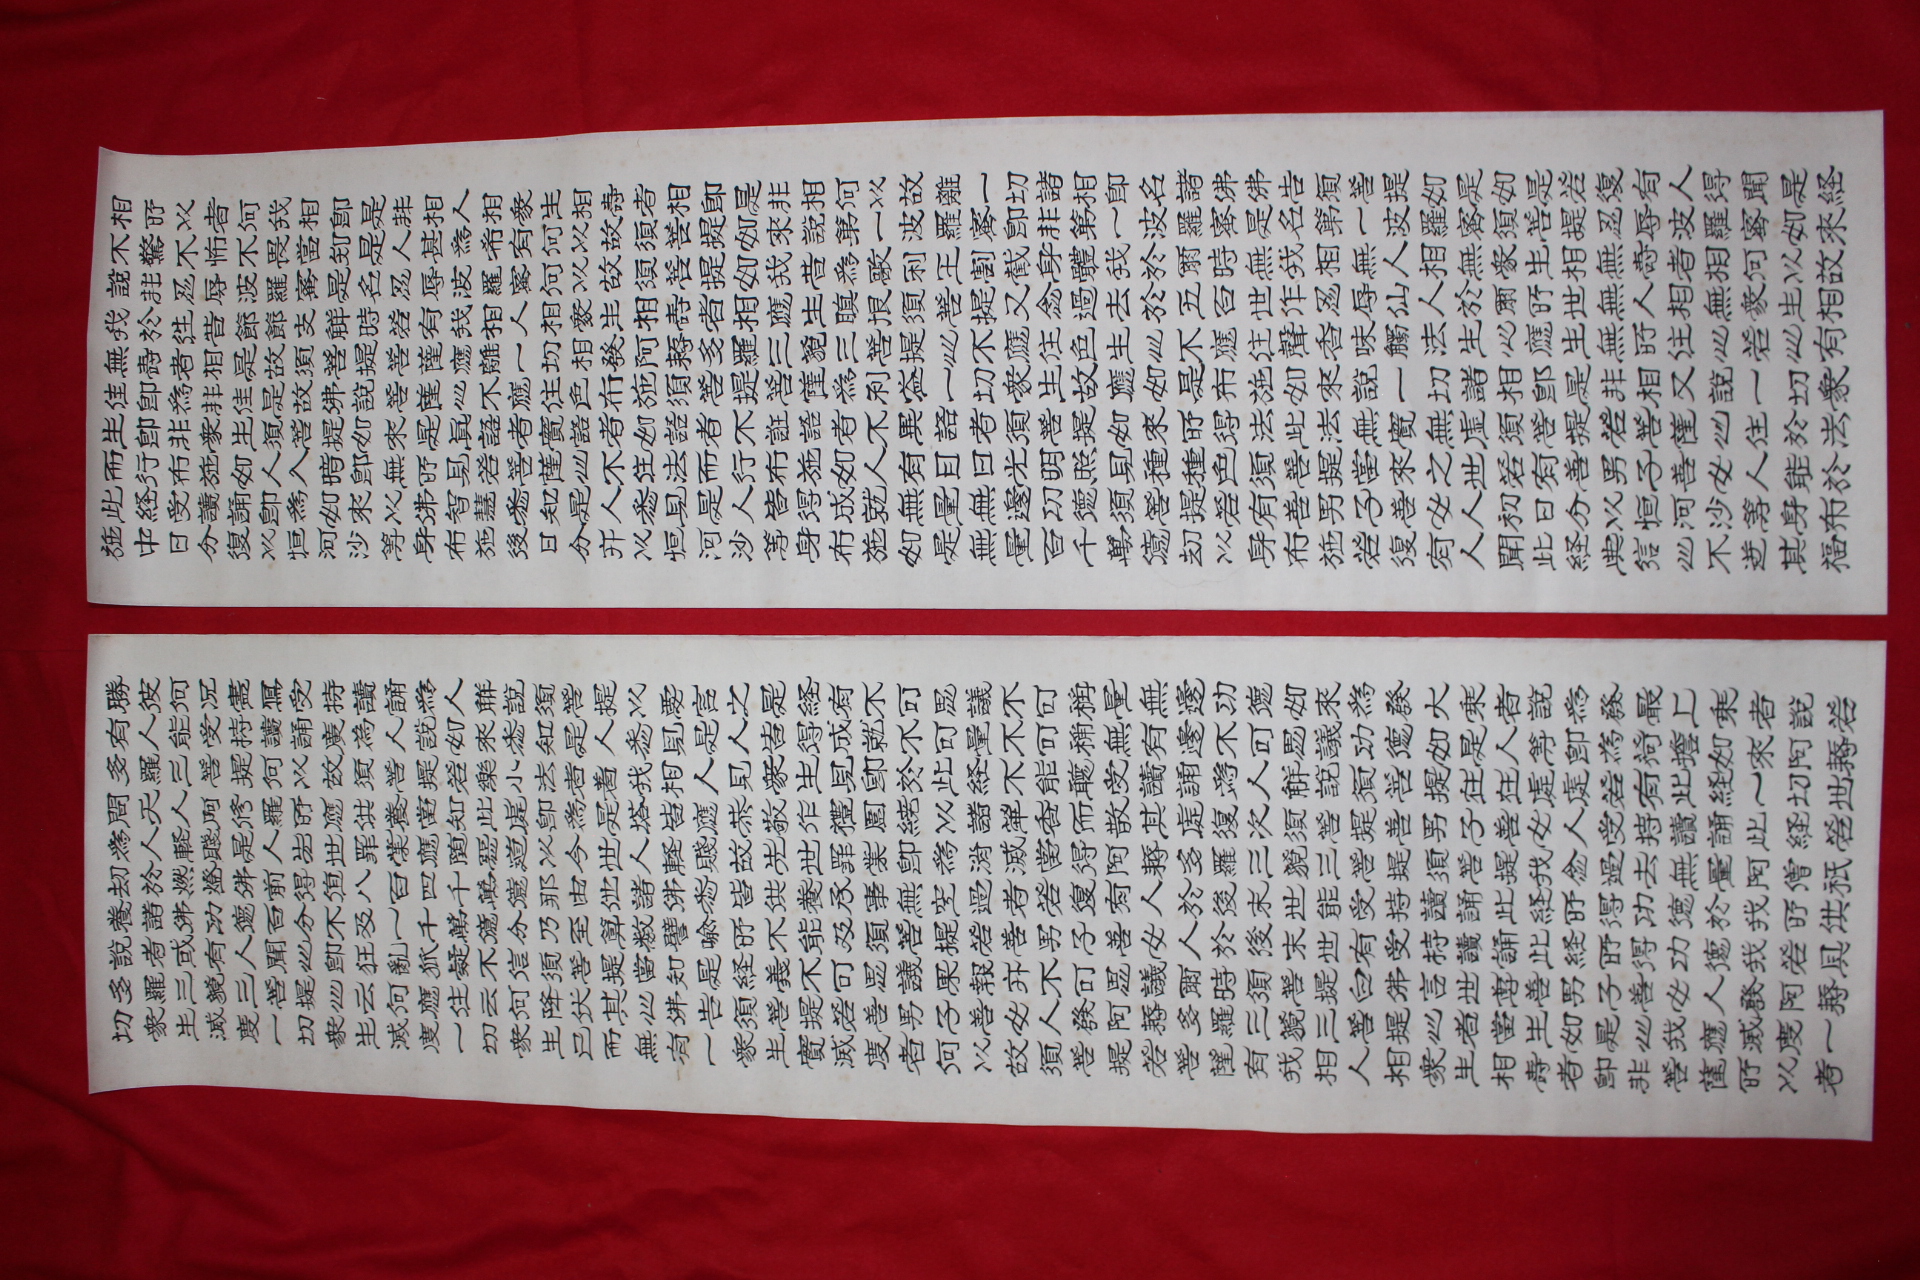 相所以者何我相即是非相人相衆生相壽者相即是非相何以故離一切諸相即名諸佛佛告須菩提如是如是若復有人得聞是経
不驚不怖不畏當知是人甚為希有何以故須菩提如來說第一波羅蜜即非第一波羅蜜是名第一波羅蜜須菩提忍辱波羅蜜如來
說非忍辱波羅蜜是名忍辱波羅蜜何以故須菩提如我昔為歌利王割截身體我於爾時無我相無人相無衆生相無壽者相何以故
我於往昔節節支解時若有我相人相衆生相壽者相應生瞋恨須菩提又念過去於五百世作忍辱仙人於爾所世無人相無衆生相
無壽者相是故須菩提菩薩應離一切相發阿耨多羅三藐三菩提心不應住色生心不應住聲香味觸法生心應生無所住心若心有
住即為非住是故佛說菩薩心不應住色布施須菩提菩薩為利益一切衆生故應如是布施如來說一切諸相即是非相又說一切衆
生即非衆生須菩提如來是眞語者實語者如語者不誑語者不異語者須菩提如來所得法此法無實無虛須菩提若菩薩心住於法
而行布施如人入時即無所見若菩薩心不住法而行布施如人有目日光明照見種種色須菩提當來之世若有善男子善女人能於
此経受讀誦即為如來以佛智慧悉知是人悉見是人皆得成就無量無邊功德須菩提若有善男子善女人初日分以恒河沙等身布
施中日分復以恒河沙等身布施後日分亦以恒河沙等身布施如是無量百千萬億劫以身布施若復有人聞此経典信心不逆其福
勝彼何況盡寫受持讀誦為人解說須菩提以要言之是経有不可思議不可稱量無邊功德如來為發大乘者說為發最上乘者說若
有人能受持讀誦廣為人說如來悉知是人悉見是人皆得成就不可量不可稱無有邊不可思議功德如是人等即為荷擔如來阿耨
多羅三菩提何以故須菩提若樂小法者著我相人見衆生見即於此経不能聽受讀誦為人解說須菩提在在處處若有此経一切世
間天人阿修羅所應供養當知此處即為是塔皆應恭敬作禮圍繞以諸華香而散其處復次須菩提善男子善女人受持讀誦此経若
為人軽賤是人先世罪業應墮惡道以今世人軽賤故先世罪業即為消滅當得阿耨多羅三藐三菩提須菩提我念過去無量阿僧祇
劫於燃燈佛前得值八百四千萬億那由他諸佛悉皆供養承事無空過者若復有人於後末世能受持讀誦此経所得功德於我所供
養諸佛功德百分不及一千萬億分乃至算數譬喻所不能及須菩提若善男子善女人於後末世有受持讀誦此経所得功德我若具
說者或有人聞心即狂亂狐疑不信須菩提當知是経義不可思議果報亦不可思議爾時須菩提白佛言世尊善男子善女人發阿耨
多羅三藐三菩提心云何應住云何降伏其心佛告須菩提若善男子善女人發阿耨多羅三藐三菩提心者當生如是心我應滅度一
切衆生滅度一切衆生滅度一切衆生已而無有一衆生實滅度者何以故須菩提若菩薩有我相人相衆生相壽者即非菩薩所以者